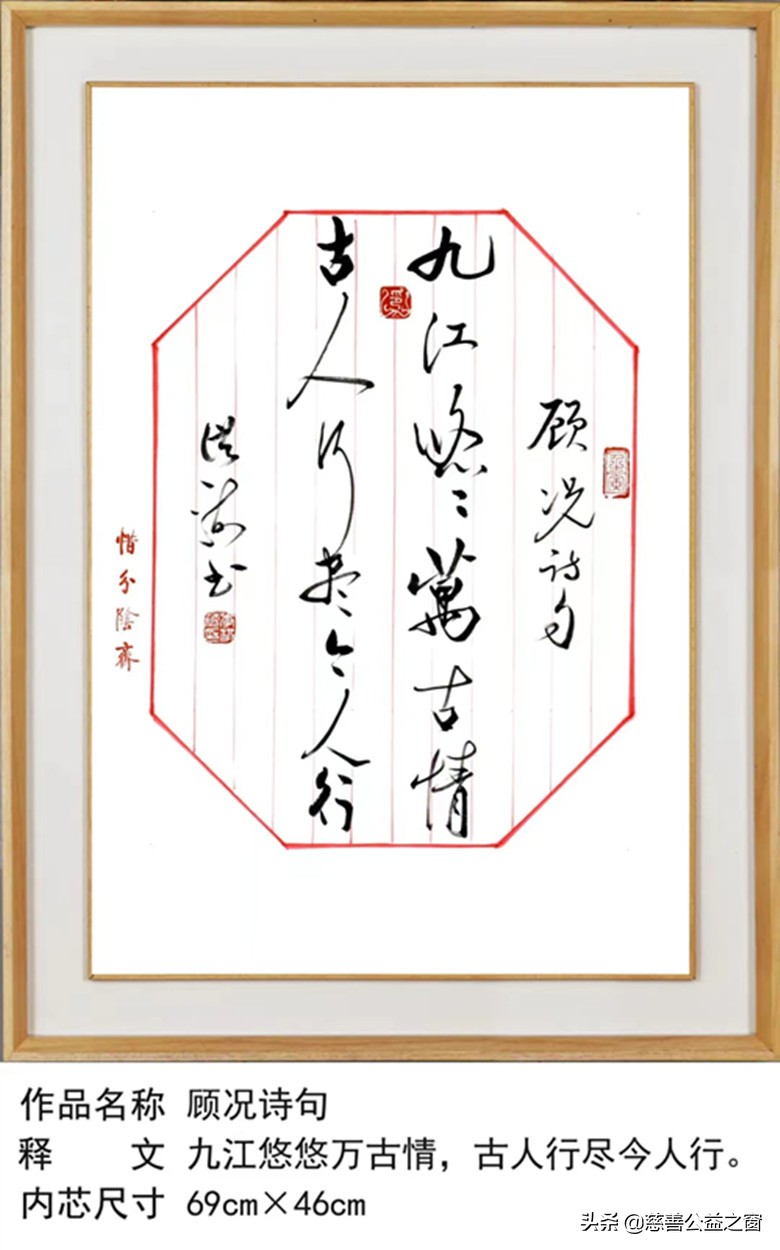 顾况诗句
九江悠〻萬古情
古人行尽今人行
惜分陰齋
作品名称 顾况诗句
释 文 九江悠悠万古情，古人行尽今人行。
内芯尺寸 69cm×46cm
头条 @慈善公益之窗